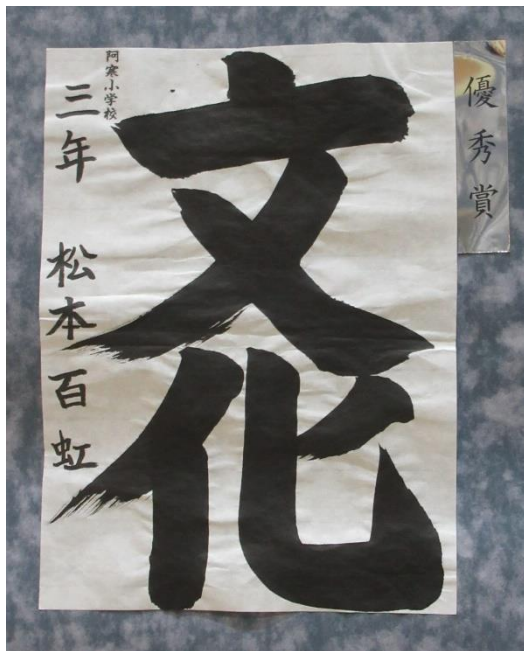 優秀賞
文化
阿寒小学校
三年 松本百虹